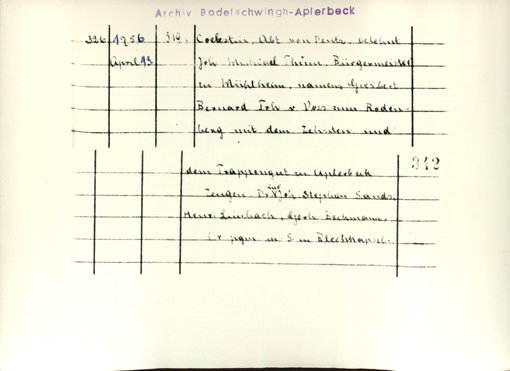 Archiv Bodelschwingh-Aplerbeck
326 1756 319. Coelestin, Abt von Deutz, belehnt
April 13 Joh. Michael Thum Bürgermeister
zu Mühlheim, namens Giesbert
Bernard Frh v. Voss zum Roden-
berg mit dem Zehnten und
342
dem Trappengut zu Aplerbeck
Zeugen Dr. Joh. Stephan Sands,
Henr. Limbach, Gerh. Beckmann.
Or. pgm. m. S. in Blechkapsel.